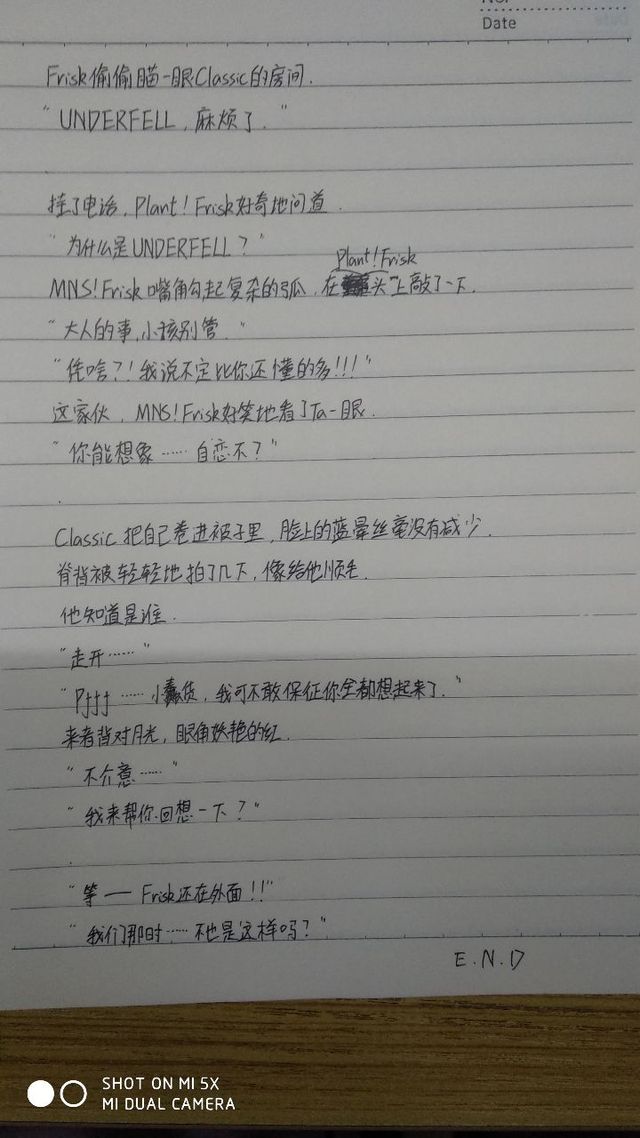 No.
Date
Frisk偷偷瞄一眼Classic的房间.
"UNDERFELL, 麻烦了."
挂了电话, Plant! Frisk好奇地问道.
"为什么是UNDERFELL?"
Plant!Frisk
MNS!Frisk嘴角勾起复杂的弧, 在头上敲了一下.
"大人的事,小孩别管."
"凭啥?! 我说不定比你还懂的多!!!"
这家伙, MNS!Frisk好笑地看了Ta一眼.
"你能想象……自恋不?"
Classic 把自己卷进被子里, 脸上的蓝晕丝毫没有减少.
脊背被轻轻地拍了几下, 像给他顺毛.
他知道是谁.
"走开……"
"Pfff……小蠢货, 我可不敢保证你全都想起来了."
来者背对月光, 眼角妖艳的红.
"不介意……"
"我来帮你回想一下?"
"等——Frisk还在外面!!"
"我们那时……不也是这样吗?"
E.N.D
SHOT ON MI 5X
MI DUAL CAMERA